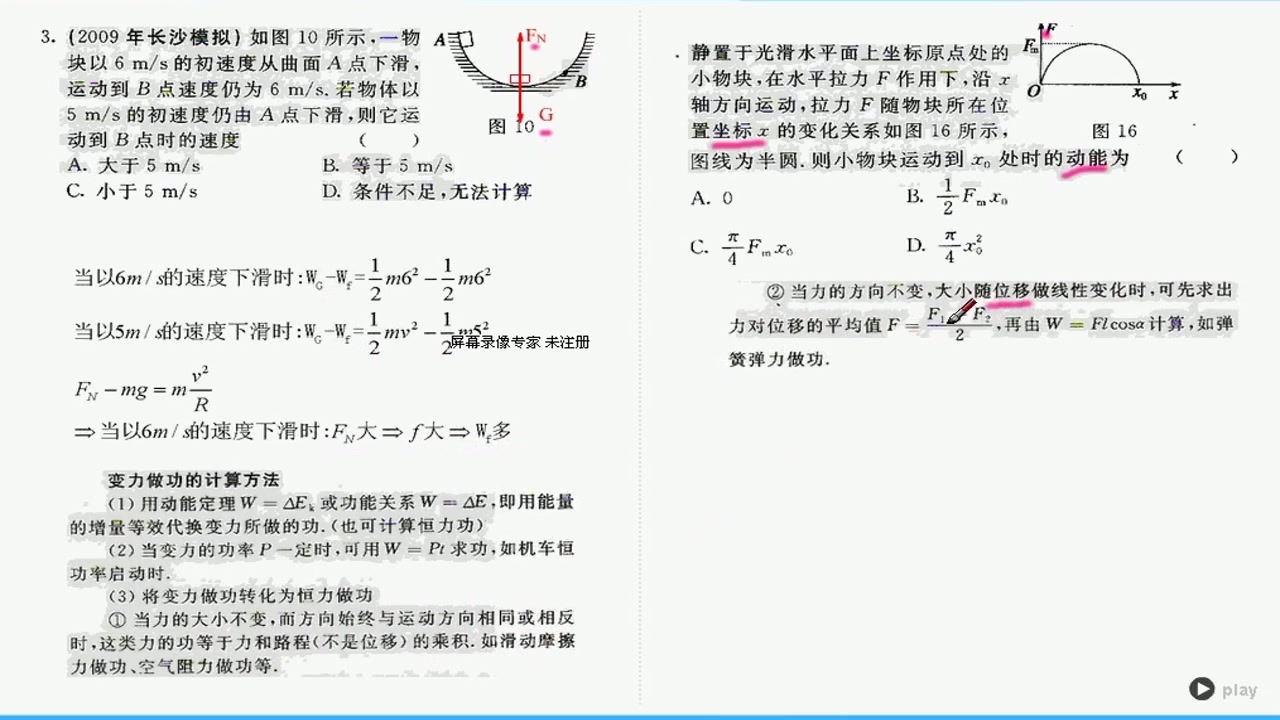 3. (2009 年长沙模拟) 如图 10 所示,一物
块以 6 m/s 的初速度从曲面 A 点下滑,
运动到 B 点速度仍为 6 m/s. 若物体以
5 m/s 的初速度仍由 A 点下滑,则它运
动到 B 点时的速度 ( )
A. 大于 5 m/s B. 等于 5 m/s
C. 小于 5 m/s D. 条件不足,无法计算
A
F_N
B
G
图 10
当以6m/s的速度下滑时:W_G-W_f=\frac{1}{2}m6²-\frac{1}{2}m6²
当以5m/s的速度下滑时:W_G-W_f=\frac{1}{2}mv²-\frac{1}{2}m5²
屏幕录像专家 未注册
F_N-mg=m\frac{v²}{R}
⇒当以6m/s的速度下滑时:F_N大⇒f大⇒W_f多
变力做功的计算方法
(1) 用动能定理 W=ΔE_k 或功能关系 W=ΔE,即用能量
的增量等效代换变力所做的功.(也可计算恒力功)
(2) 当变力的功率 P 一定时,可用 W=Pt 求功,如机车恒
功率启动时.
(3) 将变力做功转化为恒力做功
① 当力的大小不变,而方向始终与运动方向相同或相反
时,这类力的功等于力和路程(不是位移)的乘积.如滑动摩擦
力做功、空气阻力做功等.
静置于光滑水平面上坐标原点处的
小物块,在水平拉力 F 作用下,沿 x
轴方向运动,拉力 F 随物块所在位
置坐标 x 的变化关系如图 16 所示,
图线为半圆.则小物块运动到 x₀ 处时的动能为 ( )
F
F_m
O
x₀
x
图 16
A. 0 B. \frac{1}{2}F_m x₀
C. \frac{π}{4}F_m x₀ D. \frac{π}{4}x₀²
② 当力的方向不变,大小随位移做线性变化时,可先求出
力对位移的平均值 F=\frac{F₁ F₂}{2},再由 W=Flcosα 计算,如弹
簧弹力做功.
play